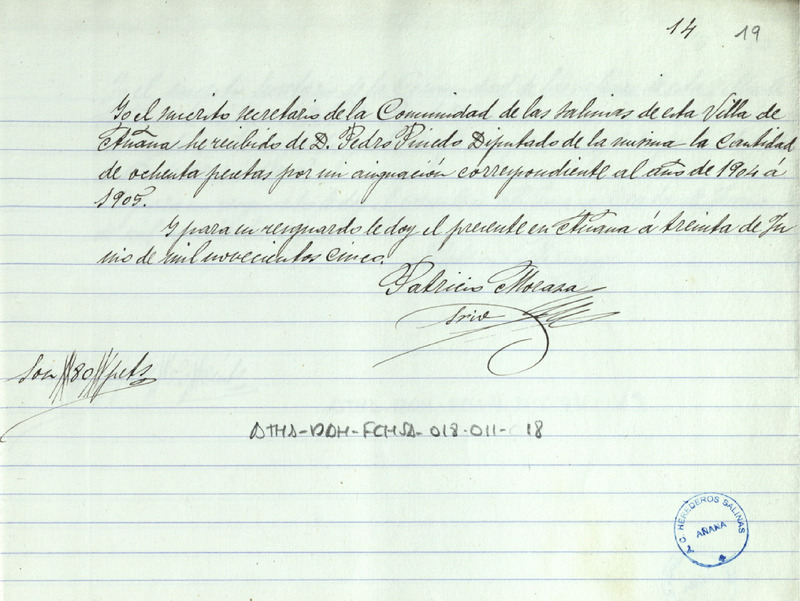 14 19
Yo el infrito secretario de la Comunidad de las salinas de esta Villa de
Añana he recibido de D. Pedro Pinedo Diputado de la misma la cantidad
de ochenta pesetas por mi asignación correspondiente al año de 1904 á
1905.
Y para su resguardo le doy el presente en Añana á treinta de Ju
nio de mil novecientos cinco
Patricio Moraza
Srio
Son 80 pets
ATHA-DAH-FCHSA-018-011-18
A. C. HEREDEROS SALINAS
AÑANA